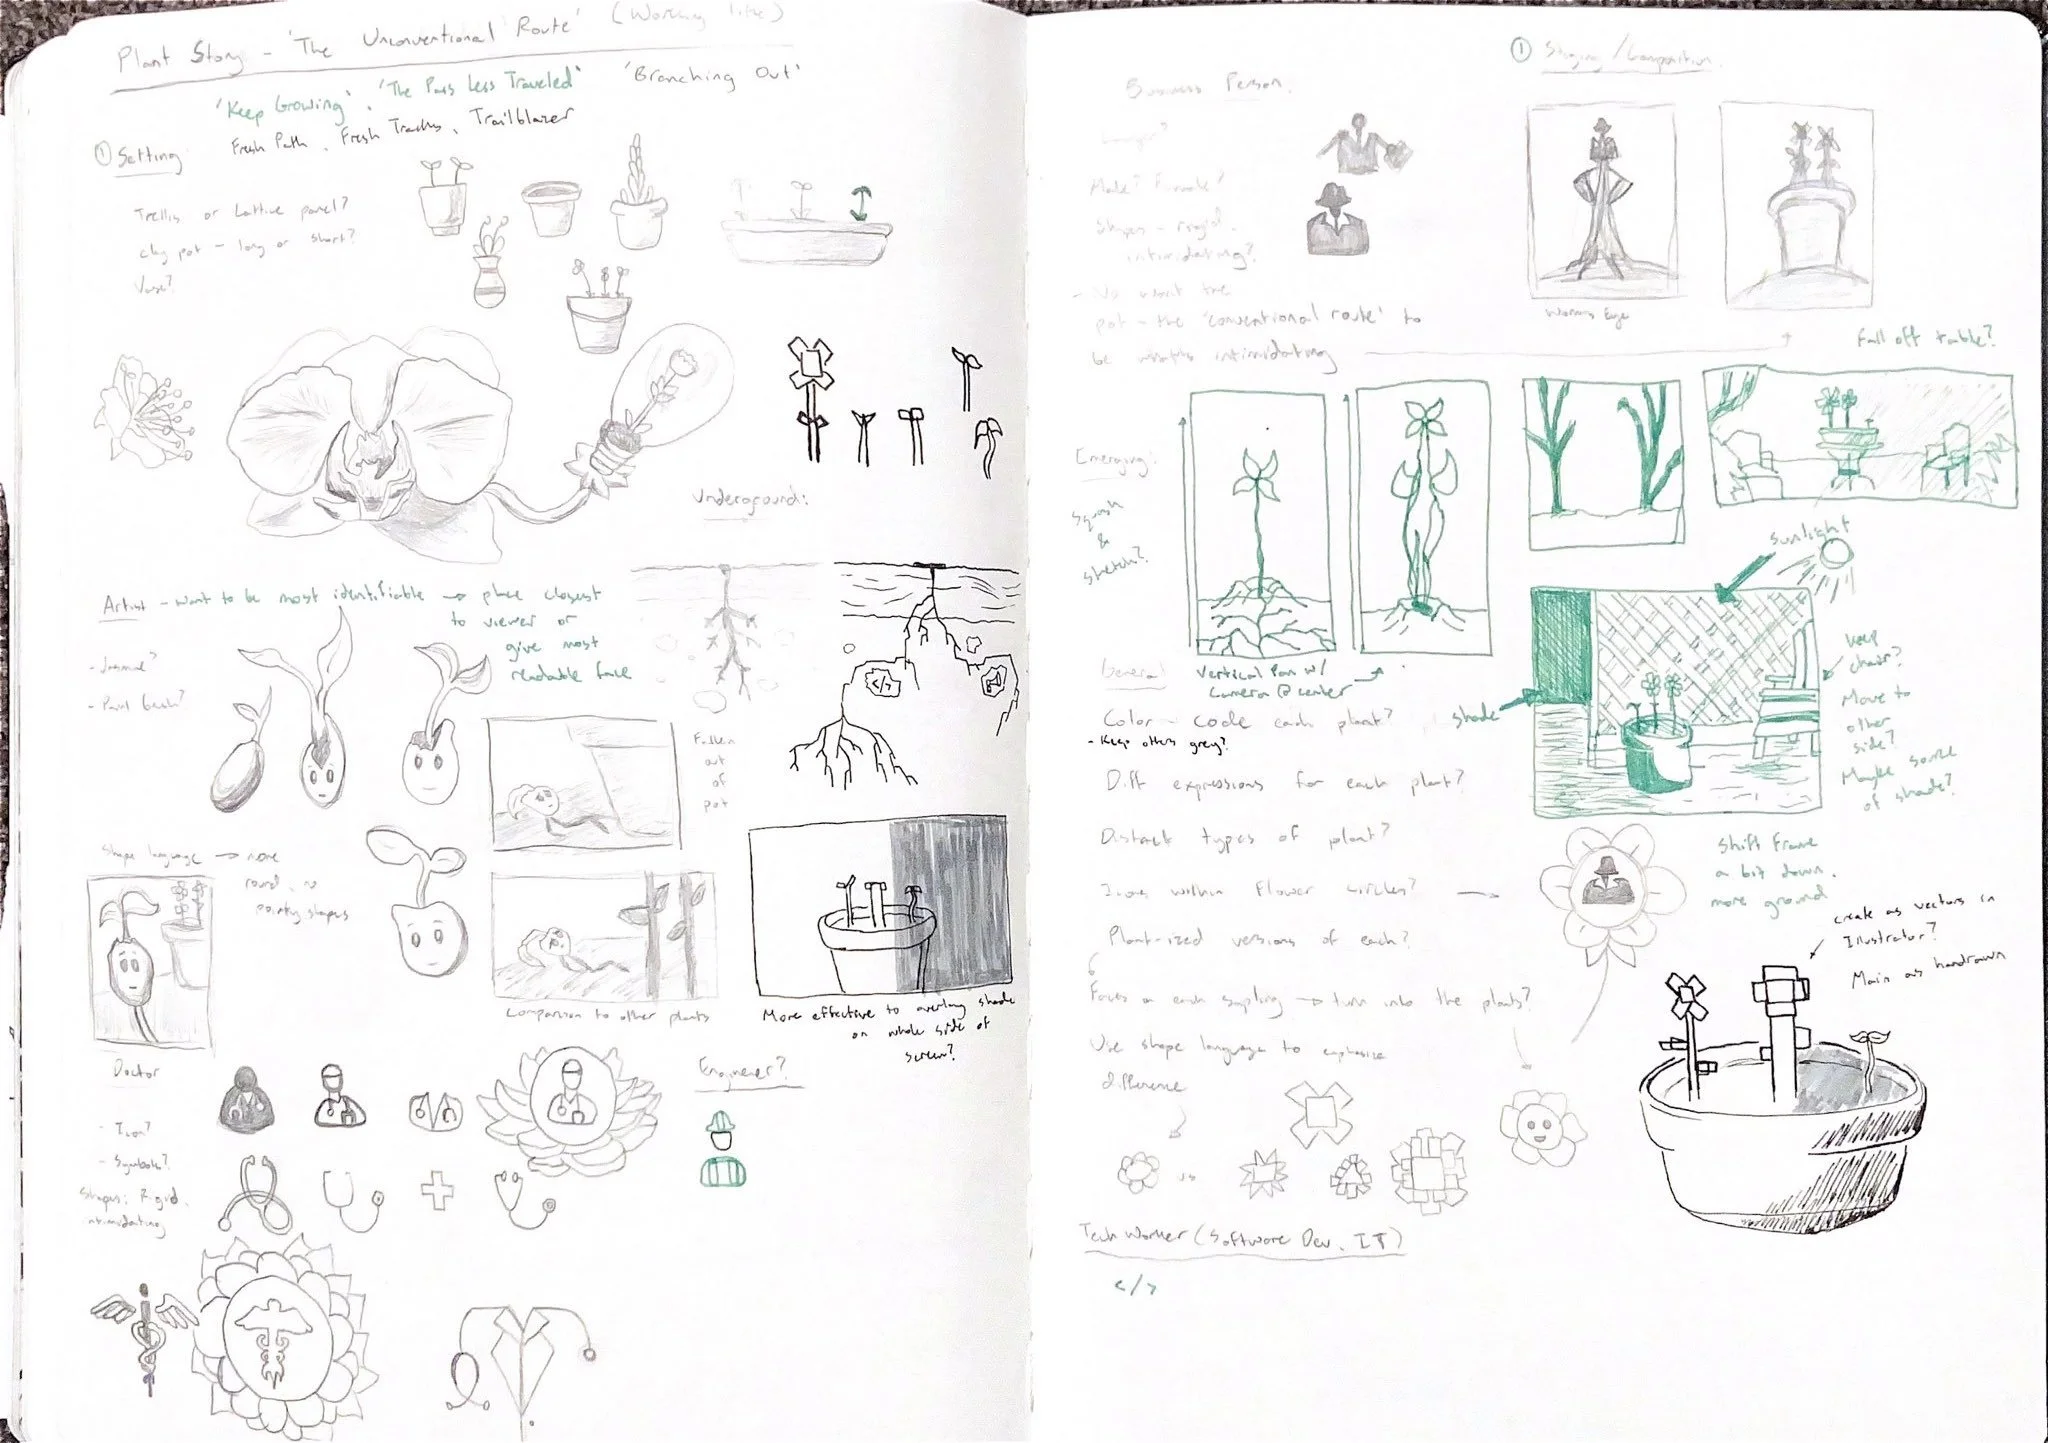 Plant Story - 'The Unconventional Route' (Working title)
'Keep Growing', 'The Pass Less Traveled' 'Branching Out'
Fresh Path, Fresh Tracks, Trailblazer
① Setting
Trellis or Lattice panel?
clay pot - long or short?
Vase?
Underground:
Artist - want to be most identifiable → place closest
to viewer or
give most
readable face
- Jasmine?
Fallen
out
of
pot
Shape language → more
round, no
pointy shapes
Comparison to other plants
More effective to overlay shade
on whole side of
screen?
Doctor
- Icon?
- Symbols?
Shapes: Rigid,
intimidating
Engineer?
Business Person
Lawyer?
Male? Female?
Shapes - rigid,
intimidating?
- No want the
pot - the 'conventional route' to
be what's intimidating
① Staging/Composition
Worms Eye
Fall off table?
Emerging:
Squash
&
stretch?
Vertical Pan w/
Camera @ center
Sunlight
shade
keep
chair?
Move to
other
side?
Maybe source
of shade?
Shift frame
a bit down,
more ground
General
Color - code each plant?
- Keep others grey?
Diff expressions for each plant?
Distinct types of plant?
Icons within flower circles?
Plant-ized versions of each?
Faces on each sapling → turn into the plants?
Use shape language to emphasize
difference
vs
create as vectors in
Illustrator?
Main as handrawn
Tech Worker (Software Dev, IT)
</>